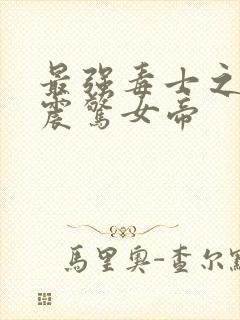 最强毒士之
震驚女帝
馬里奥-查尔